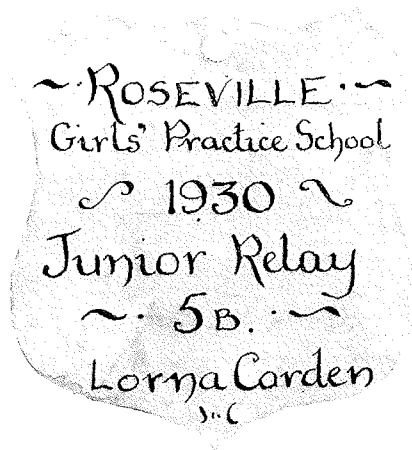 ~·ROSEVILLE·~
Girls' Practice School
~ 1930 ~
Junior Relay
~· 5B. ·~
Lorna Carden